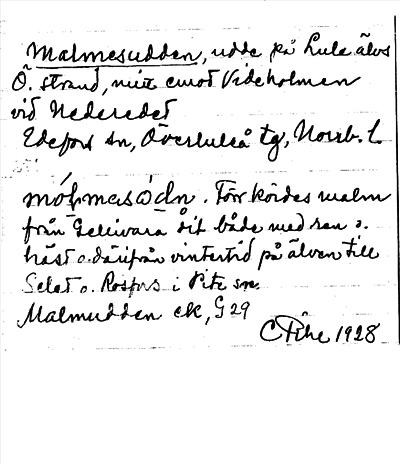 Malmesudden, udde på Lule älvs
Ö. strand, mitt emot Videholmen
vid Nederedet
Edefors sn, Överluleå tg, Norrb. l.
mólmasòdn. Förr kördes malm
från Gellivara dit både med ren o.
häst o. därifrån vintertid på älven till
Selet o. Rosfors i Pite sn.
Malmudden ek, G 29
C Pihl 1928